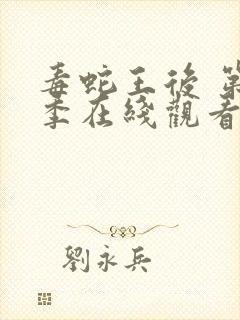 毒蛇王後 第
季在綫觀看
劉永兵